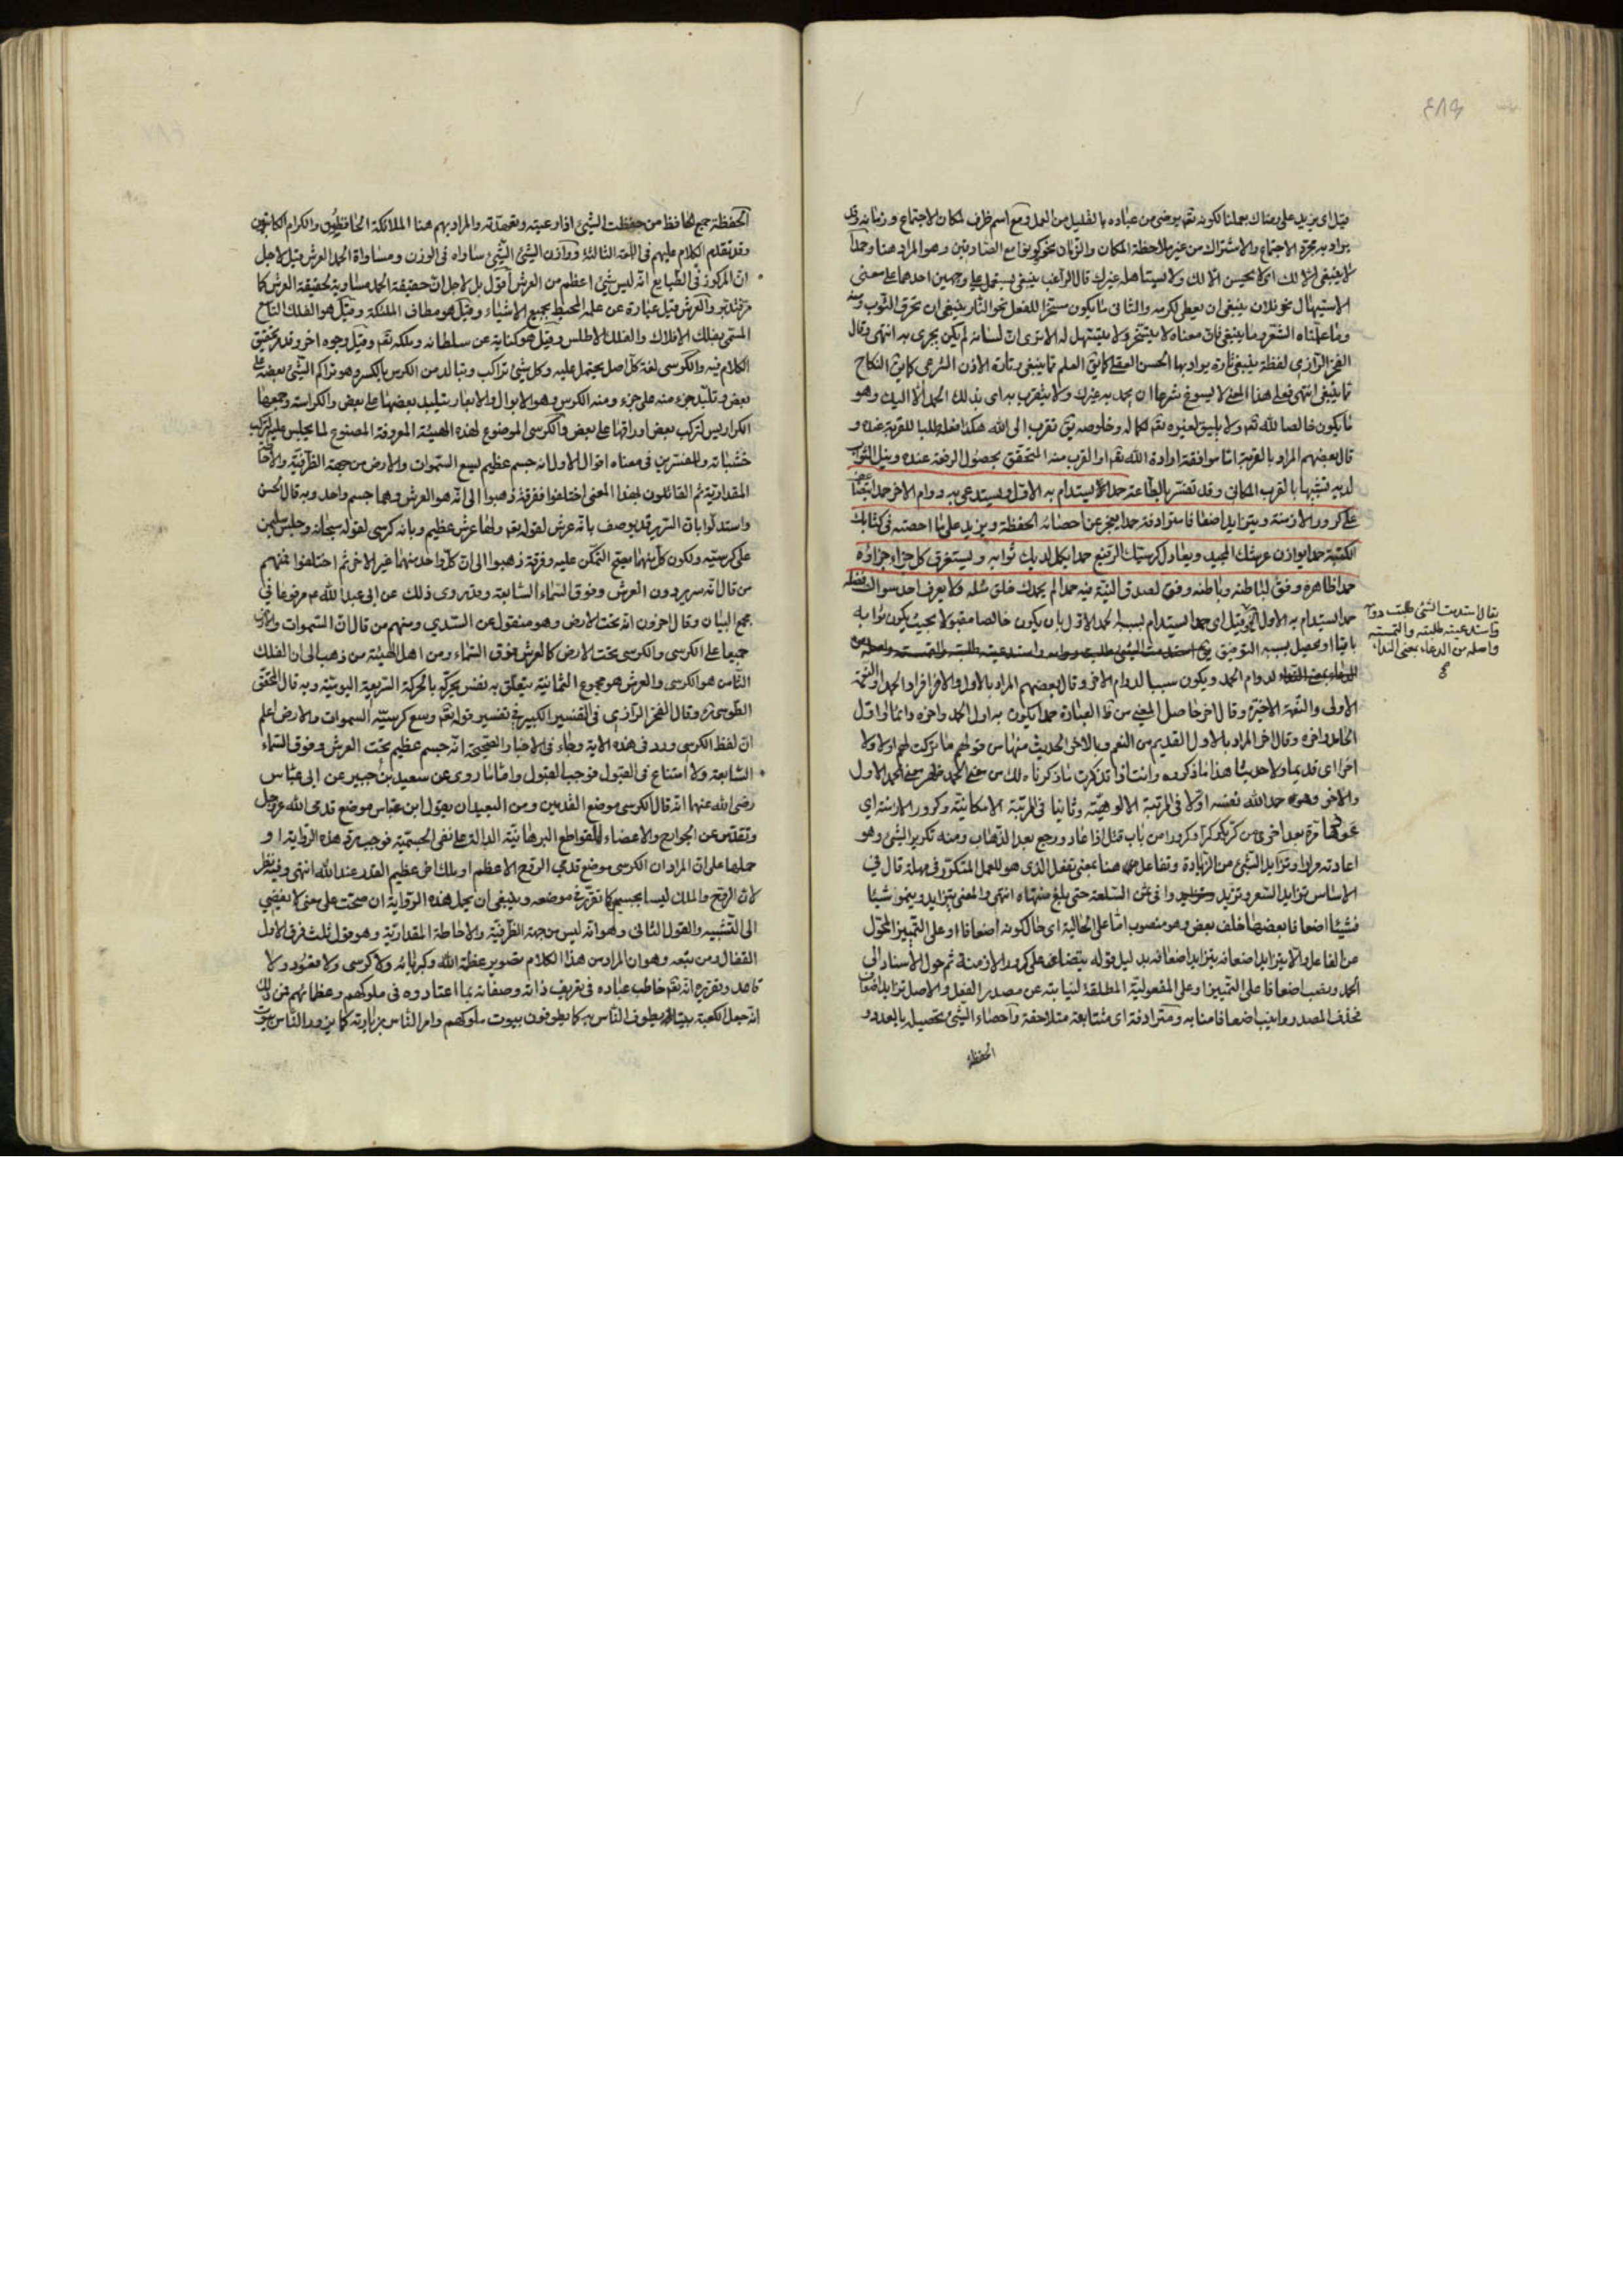 قيل اى يزيد على رضاك بعملنا لكونه تقه يرضى من عباده بالقليل من العمل ومع اسم ظرف لمكان الاجتماع وزمانه وقد
يراد به مجرّد الاجتماع والاشتراك من غير ملاحظة المكان والزّمان نحو كونوا مع الصّادقين وهو المراد هنا وحمدا
لا ينبغى الّا لك اى لا يحسن الّا لك ولا يستاهله غيرك قال الراغب ينبغى يستعمل على وجهين احدهما على معنى
الاستيهال نحو فلان ينبغى ان يعطى لكرمه والثانى ما يكون مسخّرا للفعل نحو النّار ينبغى ان تحرق الثوب ومنه
وما علّمناه الشّعر وما ينبغى فان معناه لا يتسخّر ولا يتسهل له الا ترى انّ لسانه لم يكن يجرى به انتهى وقال
الفخر الرّازى لفظة ينبغى تارة يراد بها الحسن العقلى كما يق العلم مما ينبغى وتارة الاذن الشرعى كما يق النكاح
مما ينبغى انتهى فعلى هذا المعنى لا يسوغ شرعا ان يحمد به غيرك ولا يتقرب به اى بذلك الحمد الّا اليك وهو
ما يكون خالصا لله تقه ولا يليق لغيره تقه لكماله وخلوصه يق تقرب الى الله هكذا فعله طلبا للقربة عنده و
قال بعضهم المراد بالقربة امّا موافقة ارادة الله تقه او القرب منه المتحقق بحصول الرفعة عنده ونيل الثواب
لديه تشبيها بالقرب المكانى وقد تفسّر بالطّاعة حمدا يستدام به الاوّل ويستدعى به دوام الاخر حمدا يتضاعف
على كرور الازمنة ويتزايد اضعافا مترادفة حمدا يعجز عن احصائه الحفظة ويزيد على ما احصته فى كتابك
الكتبة حمدا يوازن عرشك المجيد ويعادل كرسيّك الرّفيع حمدا يكمل لديك ثوابه ويستغرق كل جزاء جزاؤه
حمدا ظاهره وفق لباطنه وباطنه وفق لصدق النيّة فيه حمدا لم يحمدك خلق مثله ولا يعرف احد سواك فضله
حمدا يستدام به الاول الخ قيل اى حمدا يستدام بسببه الحمد الاوّل بان يكون خالصا مقبولا بحيث يكون ثوابه
باقيا او يحصل بسببه التوفيق
لدوام الحمد ويكون سببا لدوام الاخر وقال بعضهم المراد بالاول والاخر افراد الحمد او النّعمة
الاولى والنّعمة الاخيرة وقال اخر حاصل المعنى من هذه العبارة حمدا يكون به اول الحمد واخره وانما لم اقل
الحامد واخره وقال اخر المراد بالاول القديم من النعم وبالاخر الحديث منها من قولهم ما تركت لهم اولا ولا
اخرا اى قديما ولا حديثا هذا ما ذكروه وانت اذا تذكرت ما ذكرناه لك من معنى الحمد ظهر معنى الحمد الاول
والاخر وهو حمد الله نفسه اوّلا فى المرتبة الالوهيّة وثانيا فى المرتبة الامكانيّة وكرور الازمنة اى
عودها مرّة بعد اخرى من كرّ يكرّ كرّا وكرورا من باب قتل اذا عاد ورجع بعد الذّهاب ومنه تكرير الشئ وهو
اعادته مرارا وتزايد الشئ من الزّيادة وتفاعل هنا بمعنى تفعل الذى هو للعمل المتكرّر فى مهلة قال فى
الاساس تزايد السّعر وتزيد وا فى ثمن السّلعة حتى بلغ منتهاه انتهى والمعنى يتزايد وينمو شيئا
فشيئا اضعافا بعضها خلف بعض وهو منصوب امّا على الحالية اى حال كونه اضعافا او على التّمييز المحوّل
عن الفاعل والّا يتزايد اضعافه يتزايد اضعافه بدليل قوله يتضاعف على كرور الازمنة ثم حول الاسناد الى
الحمد ونصب اضعافا على التّمييز او على المفعوليّة المطلقة لنيابته عن مصدر الفعل والاصل تزايد اضعاف
فحذف المصدر وانيب اضعافا منابه ومترادفة اى متتابعة متلاحقة واحصاء الشئ تحصيله بالعدد و
الحفظة
يقال استدمت الشئ طلبت دوامه
واستدعيته طلبته والتمسته
واصله من الدعاء بمعنى النداء
الحفظة جمع الحافظ من حفظت الشئ اذا رعيته وتعهدته والمراد بهم هنا الملائكة الحافظون والكرام الكاتبون
وقد تقدم الكلام عليهم فى اللمعة الثالثة ووازن الشئ الشّئ ساواه فى الوزن ومساواة الحمد العرش قيل لاجل
انّ المركوز فى الطّبايع انّه ليس شئ اعظم من العرش اقول بل لاجل انّ حقيقة الحمد مساوية لحقيقة العرش كما
والعرش قيل عبارة عن علمه المحيط بجميع الاشياء وقيل هو مطاف الملئكة وقيل هو الفلك التاسع
المسمّى بفلك الافلاك والفلك الاطلس وقيل هو كناية عن سلطانه وملكه تقه وقيل وجوه اخر وقد مرّ تحقيق
الكلام فيه والكرسى لغة كلّ اصل يحتمل عليه وكل شئ تراكب وتبالد من الكرس بالكسر وهو تراكم الشّئ بعضه على
بعض وتلبّد جزء منه على جزء ومنه الكرس وهو الابوال والابعار يتلبد بعضها على بعض والكراسة وجمعها
الكراريس لتركب بعض اوراقها على بعض والكرسى الموضوع لهذه الهيئة المعروفة المصنوع لما يجلس عليه لتركب
خشباته وللمفسّرين فى معناه اقوال الاول انه جسم عظيم يسع السّموات والارض من جهة الظّرفيّة والاحاطة
المقداريّة ثم القائلون بهذا المعنى اختلفوا ففرقة ذهبوا الى انّه هو العرش وهما جسم واحد وبه قال الحسن
واستدلّوا بانّ السّرير قد يوصف بانّه عرش لقوله تقه ولها عرش عظيم وبانه كرسى لقوله سبحانه وجلس سليمن
على كرسيّه ولكون كلّ منهما يصحّ التمكّن عليه وفرقة ذهبوا الى انّ كلّ واحد منهما غير الاخر ثم اختلفوا فمنهم
من قال انّه سرير دون العرش وفوق السّماء السّابعة وقد روى ذلك عن ابى عبد الله ع مرفوعا فى
مجمع البيان وقال اخرون انّه تحت الارض وهو منقول عن السّدى ومنهم من قال انّ السّموات والارض
جميعا على الكرسى والكرسى تحت الارض كالعرش فوق السّماء ومن اهل الهيئة من ذهب الى ان الفلك
الثّامن هو الكرسى والعرش هو مجموع الثّمانية يتعلّق به نفس يحرّكه بالحركة السّريعة اليوميّة وبه قال المحقق
الطّوسى ره وقال الفخر الرّازى فى التفسير الكبير فى تفسير قوله تقه وسع كرسيّه السموات والارض اعلم
انّ لفظ الكرسى ورد فى هذه الاية وجاء فى الاخبار الصّحيحة انّه جسم عظيم تحت العرش وفوق السّماء
السّابعة ولا امتناع فى القبول فوجب القبول وامّا ما روى عن سعيد بن جبير عن ابن عبّاس
رضى الله عنهما انّه قال الكرسى موضع القدمين ومن البعيد ان يقول ابن عبّاس موضع قدمى الله عزّ وجل
وتقدّس عن الجوارح والاعضاء للقواطع البرهانيّة الدالة على نفى الجسميّة فوجب ردّ هذه الرّواية او
حملها على انّ المراد ان الكرسى موضع قدمى الروح الاعظم او ملك اخر عظيم القدر عند الله انتهى وفيه نظر
لانّ الرّوح والملك ليسا بجسم كما تقرّر فى موضعه وينبغى ان يحمل هذه الرّواية ان صحّت على معنى لا يفضى
الى التّشبيه والقول الثانى وهو انّه ليس من جهة الظّرفيّة والاحاطة المقداريّة وهو قول ثلث فرق الاول
القفال ومن تبعه وهو ان المراد من هذا الكلام تصوير عظمة الله وكبريائه ولا كرسى ولا مقعود ولا
قاعد وتقريره انّه تقه خاطب عباده فى تعريف ذاته وصفاته بما اعتادوه فى ملوكهم وعظمائهم فمن ذلك
انّه جعل الكعبة بيتا له يطوف النّاس به كما يطوفون بيوت ملوكهم وامر النّاس بزيارته كما يزور النّاس بيوت